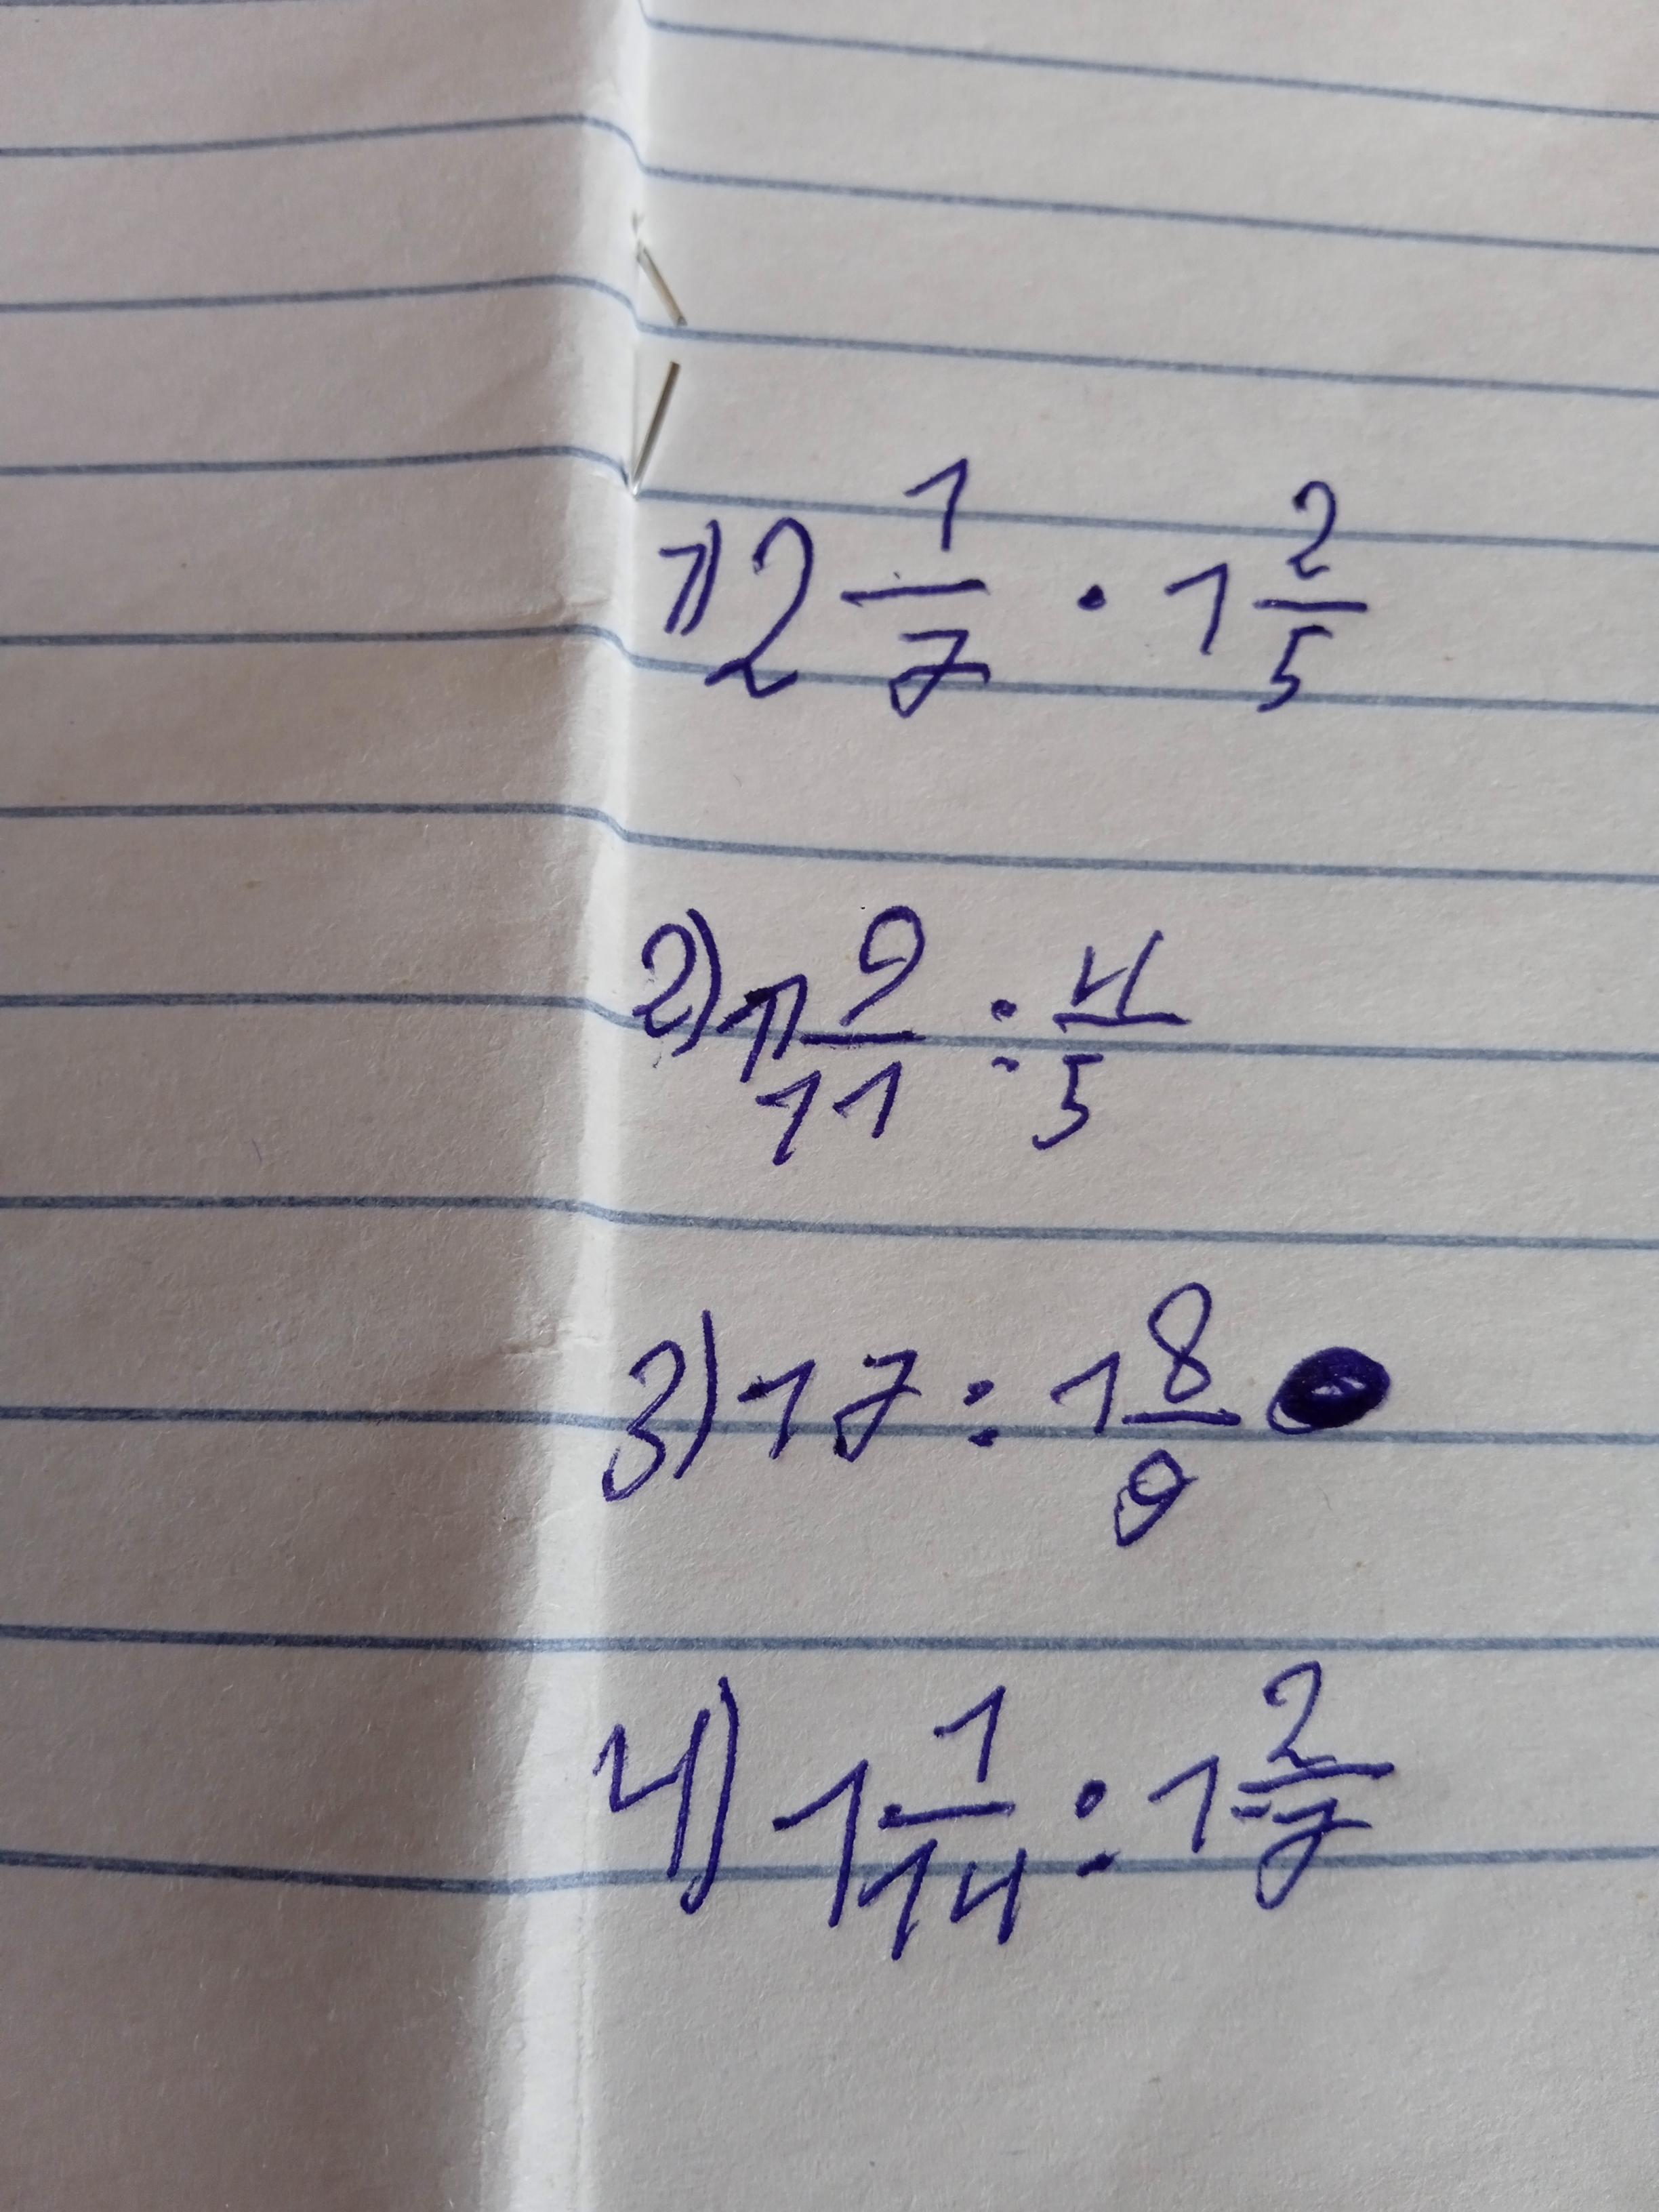 1) 2 1/7 · 1 2/5
2) 1 9/11 : 4/5
3) 17 : 1 8/9
4) 1 1/14 : 1 2/7